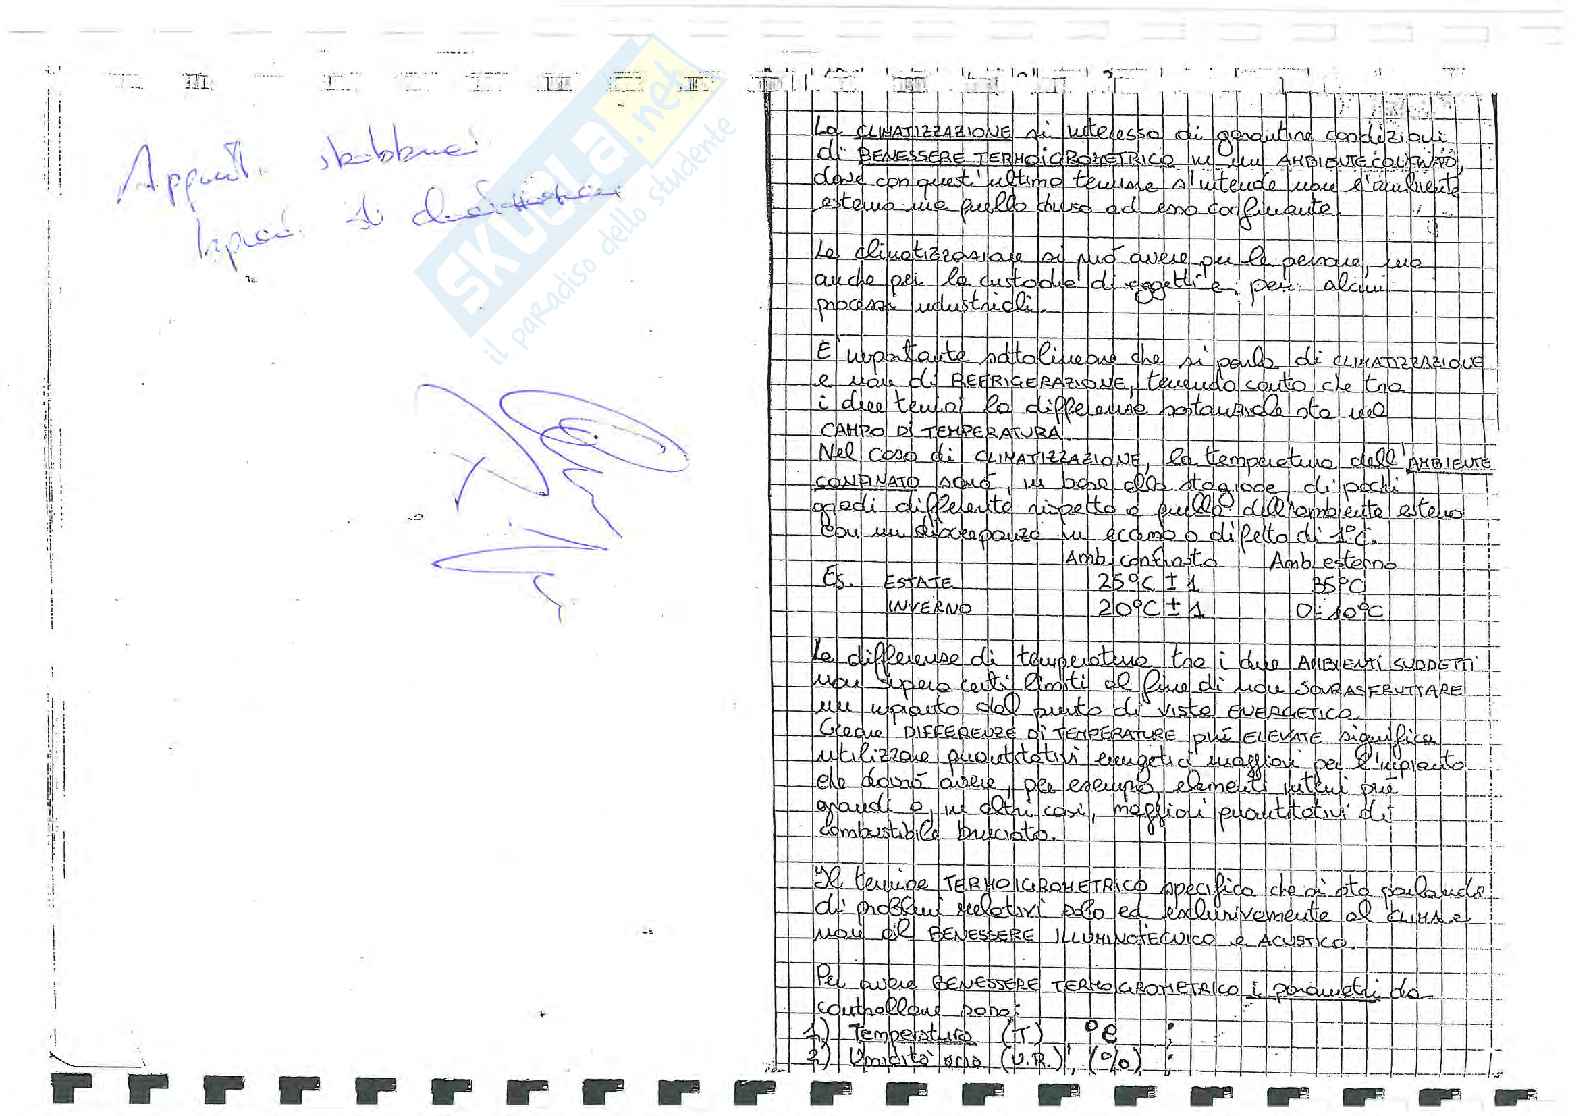 Appunti
di
SKUOLA.net
il paradiso dello studente
La CLIMATIZZAZIONE si interessa di garantire condizioni
di BENESSERE TERMOIGROMETRICO in un AMBIENTE CONFINATO,
dove con quest'ultimo termine s'intende non l'ambiente
esterno ma quello chiuso ad esso confinante.
La climatizzazione si può avere per le persone, ma
anche per la custodia di oggetti e per alcuni
processi industriali.
E' importante sottolineare che si parla di CLIMATIZZAZIONE
e non di REFRIGERAZIONE, tenendo conto che tra
i due termini la differenza sostanziale sta nel
CAMPO DI TEMPERATURA.
Nel caso di CLIMATIZZAZIONE, la temperatura dell'AMBIENTE
CONFINATO sarà, in base alla stagione, di pochi
gradi differente rispetto a quella dell'ambiente esterno
con un discrepanza in eccesso o difetto di 1°C.
Amb. confinato Amb. esterno
Es. ESTATE 25°C ± 1 35°C
INVERNO 20°C ± 1 0÷10°C
La differenza di temperatura tra i due AMBIENTI SUDDETTI
non supera certi limiti al fine di non SOVRASFRUTTARE
un impianto dal punto di vista ENERGETICO.
Creare DIFFERENZE DI TEMPERATURE più ELEVATE significa
utilizzare quantitativi energetici maggiori per l'impianto
che dovrà avere, per esempio, elementi interni più
grandi o, in altri casi, maggiori quantitativi di
combustibile bruciato.
Il termine TERMOIGROMETRICO specifica che si sta parlando
di problemi relativi solo ed esclusivamente al CLIMA e
non al BENESSERE ILLUMINOTECNICO e ACUSTICO.
Per avere BENESSERE TERMOIGROMETRICO i parametri da
controllare sono:
1) Temperatura (T) °C ;
2) Umidità (U.R.), (%) ;